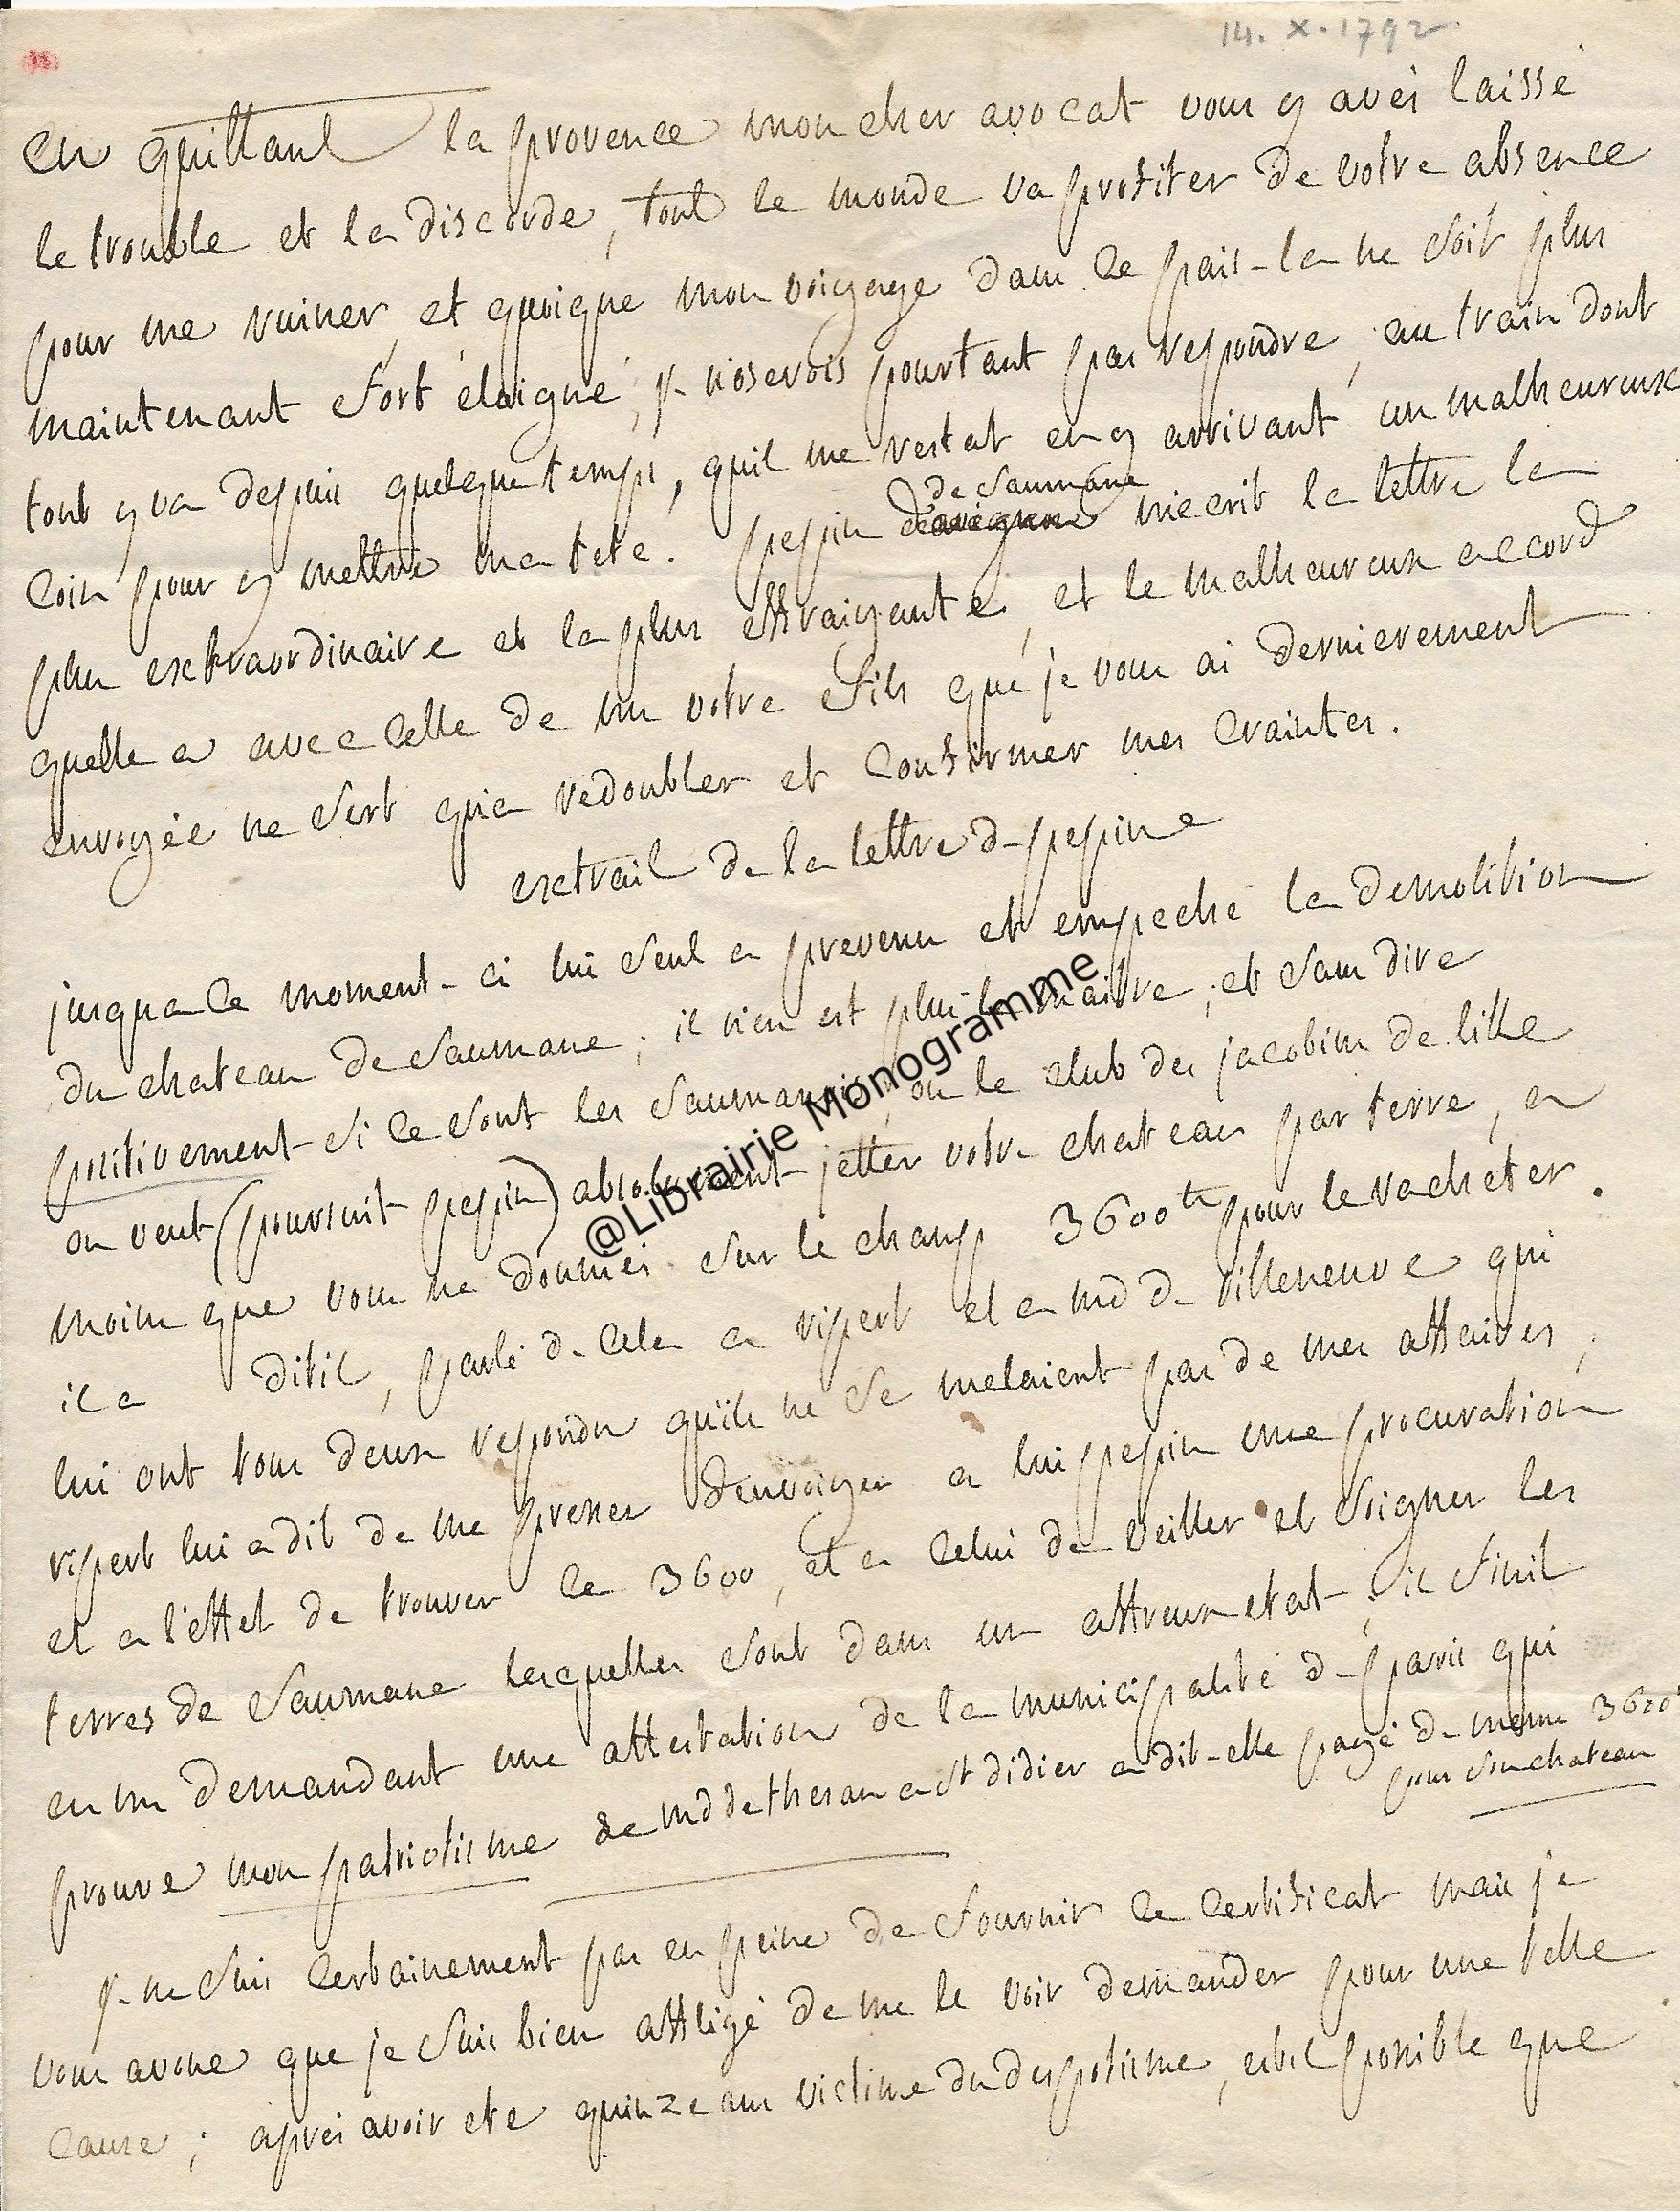 14. X. 1792
en quittant la provence mon cher avocat vous y avés laissé
le trouble et la discorde, tout le monde va profiter de votre absence
pour me ruiner, et quoique mon voiyage dans ce païs-la ne soit plus
maintenant fort éloigné, je n'oserois pourtant pas repondre, au train dont
tout y va depuis quelque temps, quil me restat en y arrivant un malheureux
coin pour y mettre ma tete. pepin de saumane m'ecrit la lettre la
plus extraordinaire et la plus effraiyante, et le malheureux accord
quelle a avec celle de mr votre fils que je vous ai dernierement
envoyée ne sert qu'a redoubler et confirmer mes craintes.
extrait de la lettre de pepin
jusqua ce moment-ci lui seul a prevenu et empeché la demolition
du chateau de saumane; il n'en est plus le maitre; et sans dire
positivement si ce sont les saumanais, ou le club des jacobins de lille
on veut (poursuit pepin) absolument jetter votre chateau par terre, a
moins que vous ne donniés sur le champ 3600 tt pour le racheter.
il a ditil, parlé de cela a ripert et a md de villeneuve qui
lui ont tous deux repondu qu'ils ne se melaient pas de mes affaires;
ripert lui a dit de me presser d'envoiyer a lui pepin une procuration
et a l'effet de trouver ce 3600, et a celui de veiller et soigner les
terres de saumane lesquelles sont dans un affreux etat; il finit
en me demandant une attestation de la municipalité de paris qui
prouve mon patriotisme de md de thesan a st didier a dit-elle payé de meme 3600 tt
pour son chateau
je ne suis certainement pas en peine de fournir ce certificat mais je
vous avoue que je suis bien affligé de me le voir demander pour une telle
cause; aprés avoir eté quinze ans victime du despotisme, estil possible que
@Librairie Monogramme